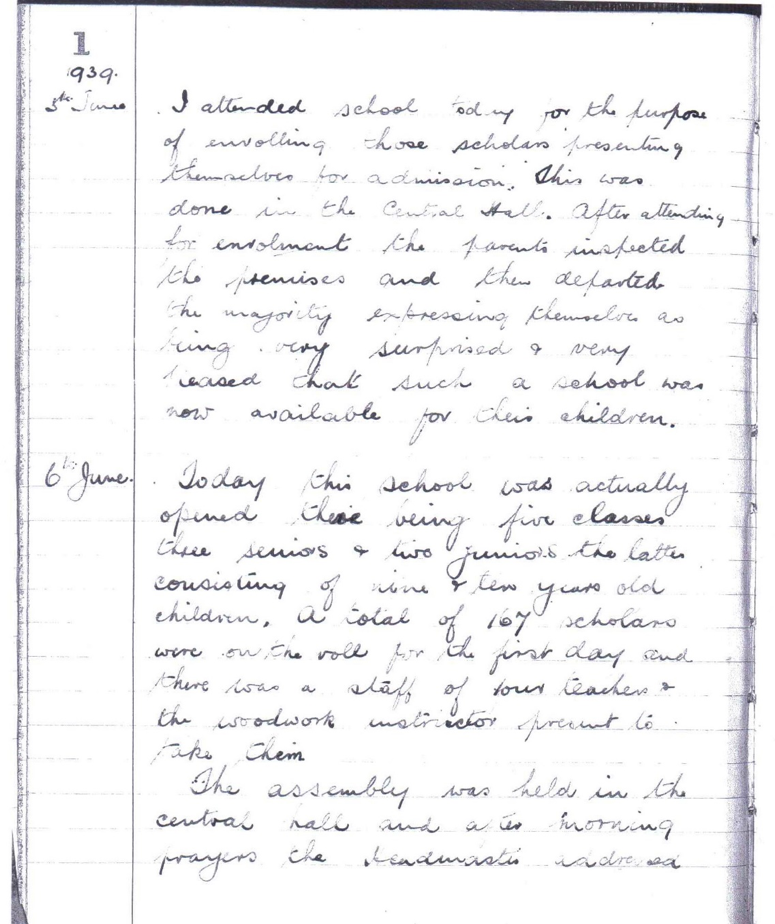 1
1939.
5th June
I attended school today for the purpose
of enrolling those scholars presenting
themselves for admission. This was
done in the Central Hall. After attending
for enrolment the parents inspected
the premises and then departed
the majority expressing themselves as
being very surprised & very
pleased that such a school was
now available for their children.
6th June.
Today this school was actually
opened there being five classes
three seniors & two juniors the latter
consisting of nine & ten years old
children. A total of 167 scholars
were on the roll for the first day and
there was a staff of four teachers &
the woodwork instructor present to
take them
The assembly was held in the
central hall and after morning
prayers the Headmaster addressed